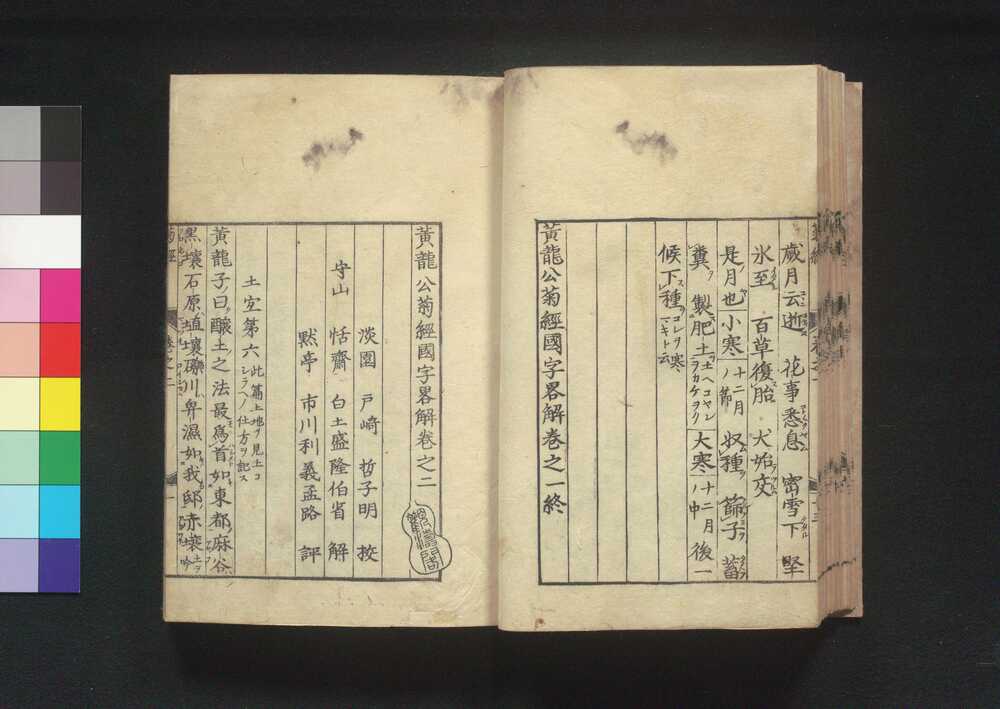 歲月云逝 花事悉息 密雪下 堅
氷至 百草復胎 犬始交
是月也小寒十二月ノ節 収種 篩子 蓄
糞 製肥土土ヘコヤシヲカケヲク 大寒十二月ノ中 後一
候下種コレヲ寒マキト云
黃龍公菊經國字畧解卷之一終
黃龍公菊經國字畧解卷之二
淡園 戸崎 哲子明 挍
守山 恬齋 白土盛隆伯省 解
黙亭 市川利義孟路 評
土宜第六此篇土地ヲ見土コシラヘノ仕方ヲ記ス
黃龍子曰釀土之法最爲首如東都麻谷
黑壤石原埴壤礫川卑濕如我邸赤壤吟
菊經 卷之二 一